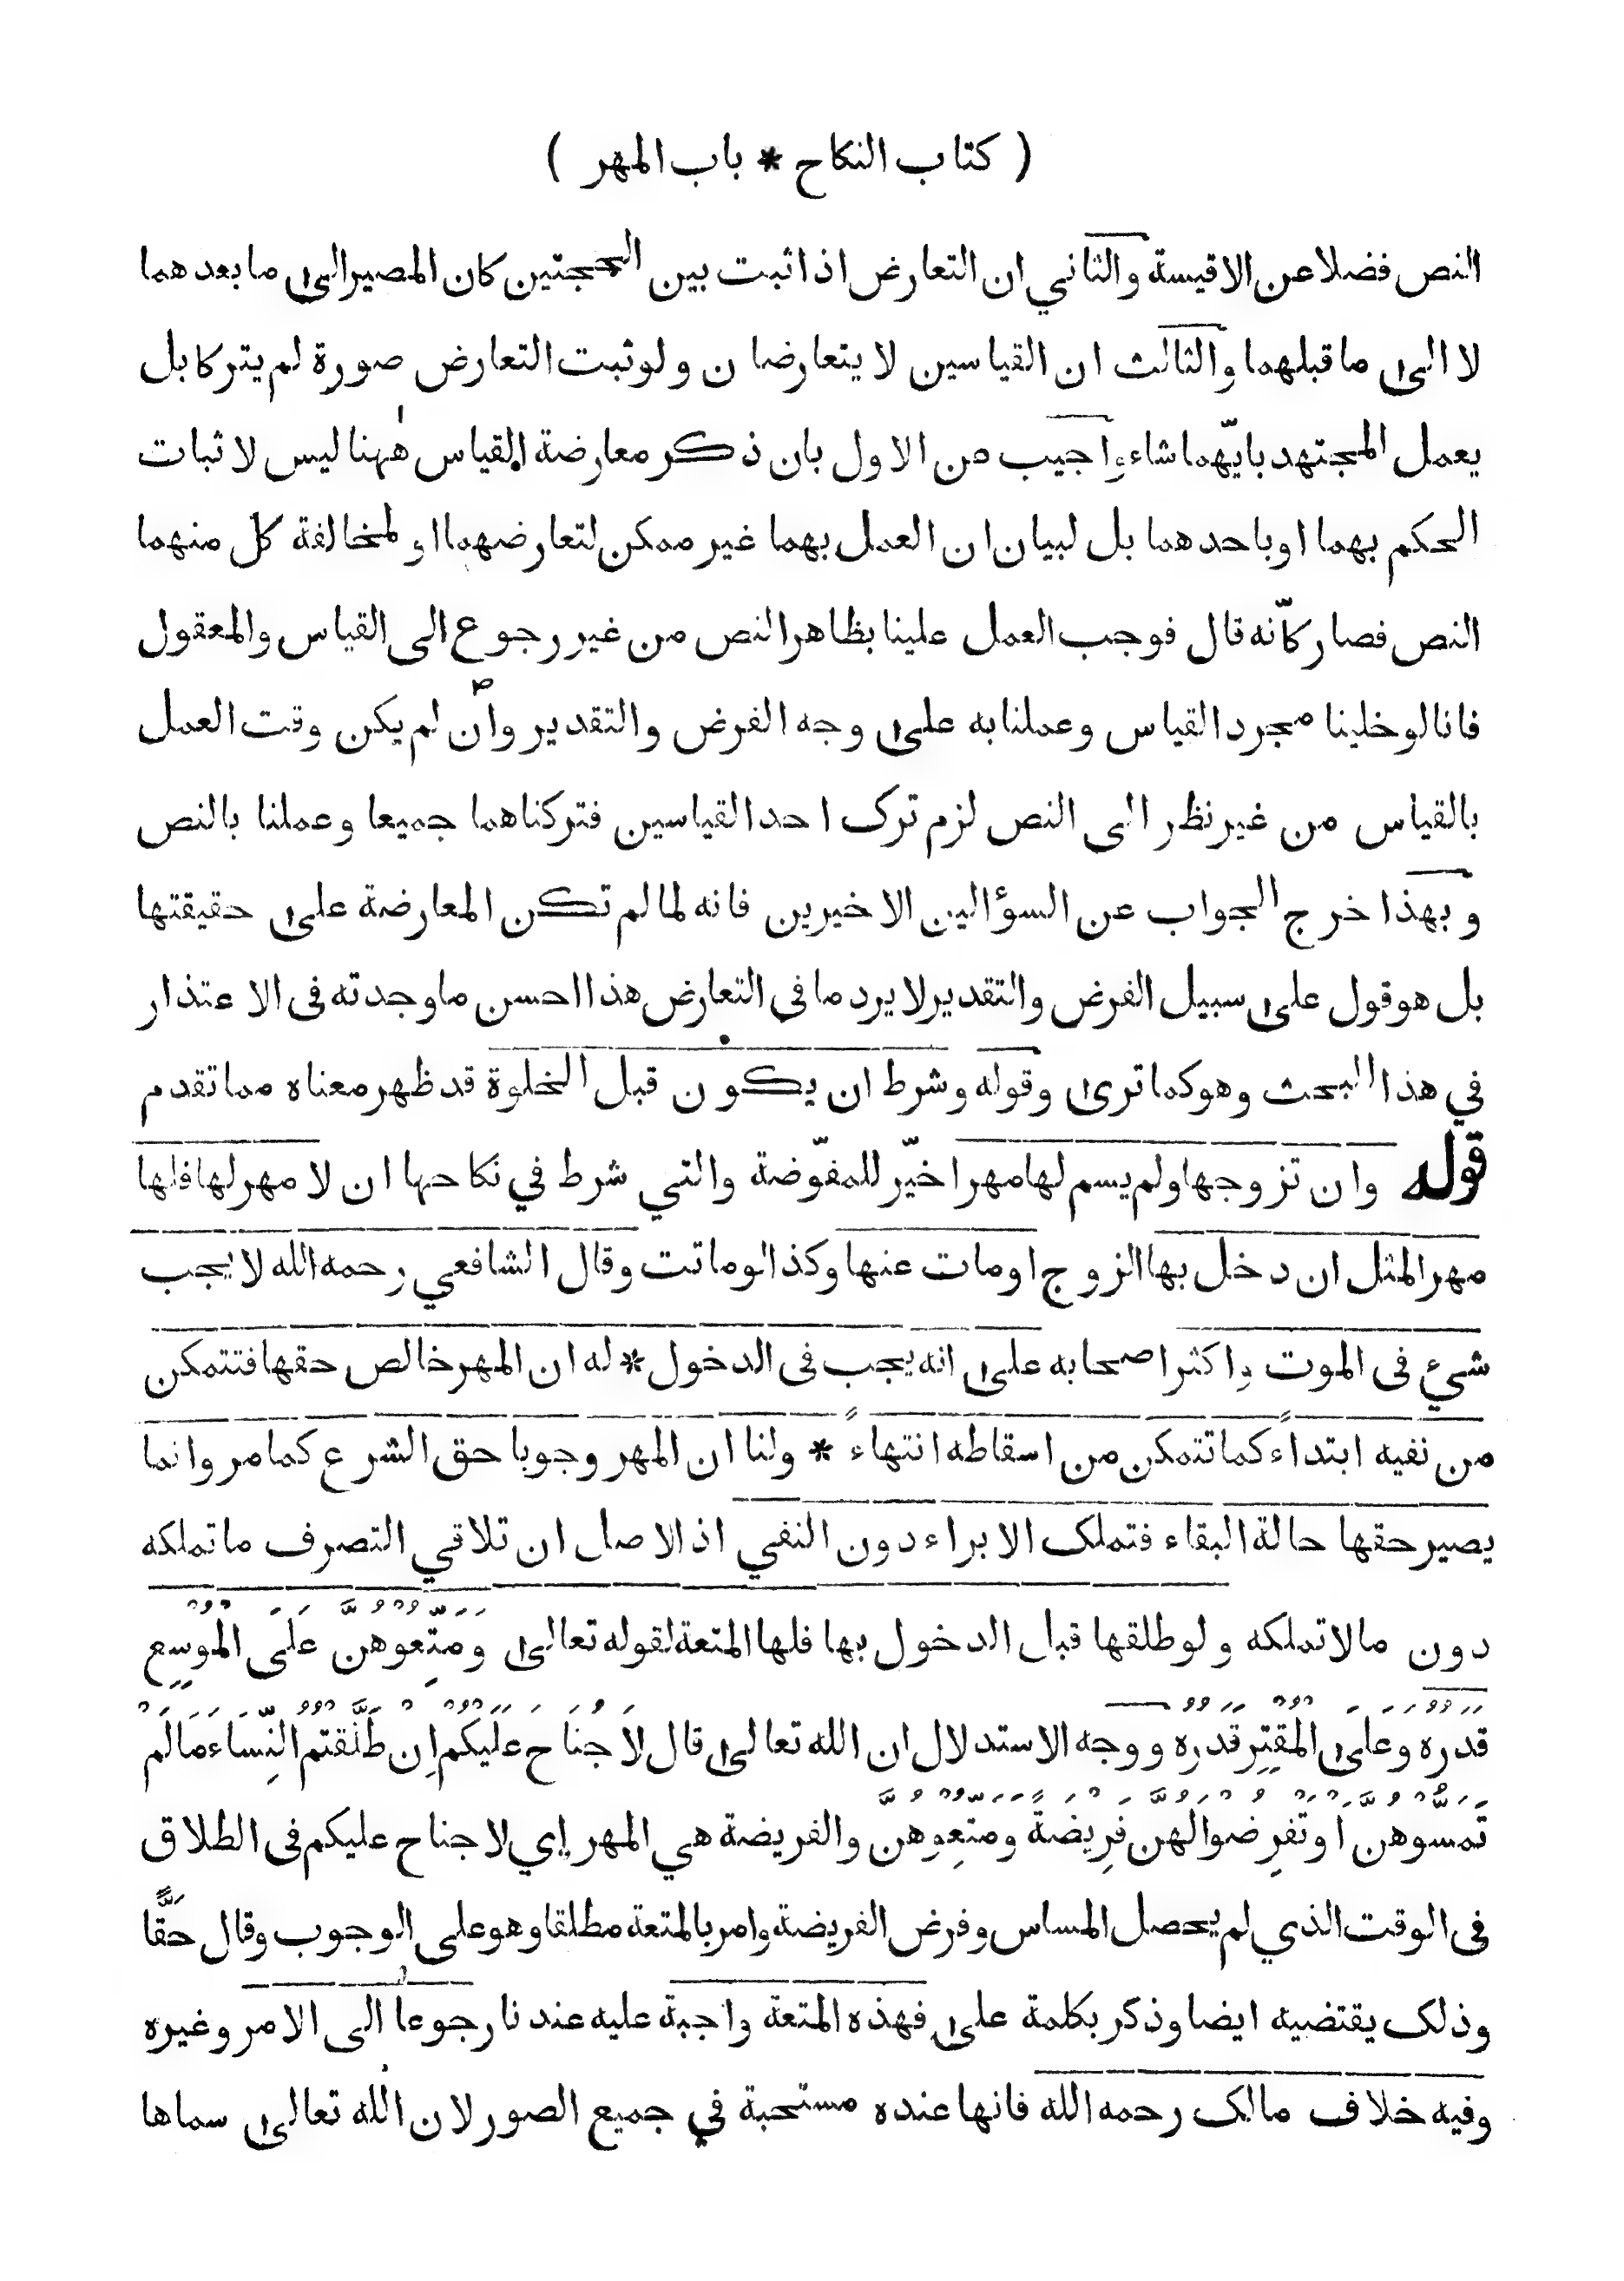 ( كتاب النكاح * باب المهر )
النص فضلا عن الاقيسة والثاني ان التعارض اذا ثبت بين الحجتين كان المصير الى ما بعدهما
لا الى ما قبلهما والثالث ان القياسين لا يتعارضان ولو ثبت التعارض صورة لم يتركا بل
يعمل المجتهد بايّهما شاء واجيب من الاول بان ذكر معارضة القياس هٰهنا ليس لاثبات
الحكم بهما او باحدهما بل لبيان ان العمل بهما غير ممكن لتعارضهما او لمخالفة كل منهما
النص فصار كانّه قال فوجب العمل علينا بظاهر النص من غير رجوع الى القياس والمعقول
فانا لو خلينا مجرد القياس وعملنا به على وجه الفرض والتقدير وان لم يكن وقت العمل
بالقياس من غير نظر الى النص لزم ترك احد القياسين فتركناهما جميعا وعملنا بالنص
وبهذا خرج الجواب عن السؤالين الاخيرين فانه لما لم تكن المعارضة على حقيقتها
بل هو قول على سبيل الفرض والتقدير لا يرد ما في التعارض هذا احسن ما وجدته فى الاعتذار
في هذا البحث وهو كما ترى وقوله وشرط ان يكون قبل الخلوة قد ظهر معناه مما تقدم
قوله وان تزوجها ولم يسم لها مهرا خيّر للمفوّضة والتي شرط في نكاحها ان لا مهر لها فلها
مهر المثل ان دخل بها الزوج او مات عنها وكذا لو ماتت وقال الشافعي رحمه الله لا يجب
شيء فى الموت واكثر اصحابه على انه يجب فى الدخول * له ان المهر خالص حقها فتتمكن
من نفيه ابتداءً كما تتمكن من اسقاطه انتهاءً * ولنا ان المهر وجوبا حق الشرع كما مر وانما
يصير حقها حالة البقاء فتملك الابراء دون النفي اذ الاصل ان تلاقي التصرف ما تملكه
دون مالا تملكه ولو طلقها قبل الدخول بها فلها المتعة لقوله تعالى وَمَتِّعُوْهُنَّ عَلَى الْمُوْسِعِ
قَدَرُهُ وَعَلَى الْمُقْتِرِ قَدَرُهُ ووجه الاستدلال ان الله تعالى قال لَا جُنَاحَ عَلَيْكُمْ اِنْ طَلَّقْتُمُ النِّسَاءَ مَا لَمْ
تَمَسُّوْهُنَّ اَوْ تَفْرِضُوْا لَهُنَّ فَرِيْضَةً وَمَتِّعُوْهُنَّ والفريضة هي المهر اي لا جناح عليكم فى الطلاق
فى الوقت الذي لم يحصل المساس وفرض الفريضة وامر بالمتعة مطلقا وهو على الوجوب وقال حَقًّا
وذلك يقتضيه ايضا وذكر بكلمة على فهذه المتعة واجبة عليه عندنا رجوعا الى الامر وغيره
وفيه خلاف مالك رحمه الله فانها عنده مستحبة في جميع الصور لان الله تعالى سماها